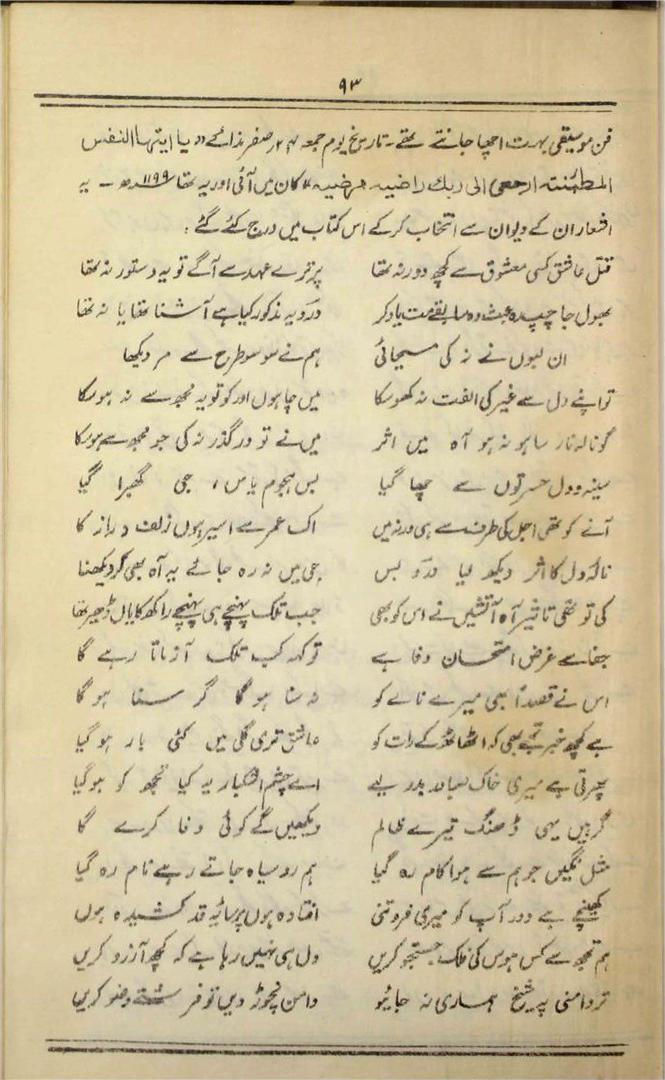 ۹۳
فن موسیقی بہت اچھا جانتے تھے۔ تاریخ یوم جمعہ ۲۴ صفر ندائے ،،یا ایتہا النفس
المطمٔنتہ ارجعی الی ربك راضیہ مرضیہ،، کان میں آئی اور یہ تھا ۱۱۹۹ھ ۔ یہ
اشعار ان کے دیوان سے انتخاب کرکے اس کتاب میں درج کئے گئے :
قتل عاشق کسی معشوق سے کچھ دور نہ تھا پر ترے عہد سے آگے تو یہ دستور نہ تھا
بھول جا چپ رہ عبث وہ سابقے مت یاد کر درد یہ مذکور کیا ہے آشنا تھا یا نہ تھا
ان لبوں نے نہ کی مسیحائی ہم نے سو سو طرح سے مر دیکھا
تو اپنے دل سے غیر کی الفت نہ کھو سکا میں چاہوں اور کو تو یہ مجھ سے نہ ہو سکا
گو نالہ نار سا ہو نہ ہو آہ میں اثر میں نے تو در گذر نہ کی جو مجھ سے ہو سکا
سینہ و دل حسرتوں سے چھا گیا بس ہجوم یاس، جی گھبرا گیا
آنے کو تھی اجل کی طرف سے ہی ورنہ میں اک عمر سے اسیر ہوں زلف دراز کا
نالۂ دل کا اثر دیکھ لیا درد بس جی میں نہ رہ جائے یہ آہ بھی کر دیکھنا
کی تو تھی تاثیر آہ آتشیں نے اس کو بھی جب تلک پہنچے ہی پہنچے راکھ کا یاں ڈھیر تھا
جفا سے غرض امتحان وفا ہے تو کہہ کب تلک آزماتا رہے گا
اس نے قصداً بھی میرے نالے کو نہ سنا ہوگا گر سنا ہوگا
ہے کچھ خبر تجھے بھی کہ اٹھ اٹھ کے رات کو عاشق تری گلی میں کئی بار ہو گیا
پھرتی ہے میری خاک صبا در بدر لیے اے چشم اشکبار یہ کیا تجھ کو ہو گیا
گر ہیں یہی ڈھنگ تیرے ظالم دیکھیں گے کوئی وفا کرے گا
مثل نگیں جو ہم سے ہوا کام رہ گیا ہم رو سیاہ جاتے رہے نام رہ گیا
کھینچے ہے دور آپ کو میری فروتنی افتادہ ہوں پر سائیہ قد کشیدہ ہوں
ہم تجھ سے کس ہوس کی فلک جستجو کریں دل ہی نہیں رہا ہے کہ کچھ آرزو کریں
تر دامنی پہ شیخ ہماری نہ جائیو دامن نچوڑ دیں تو فرشتے وضو کریں